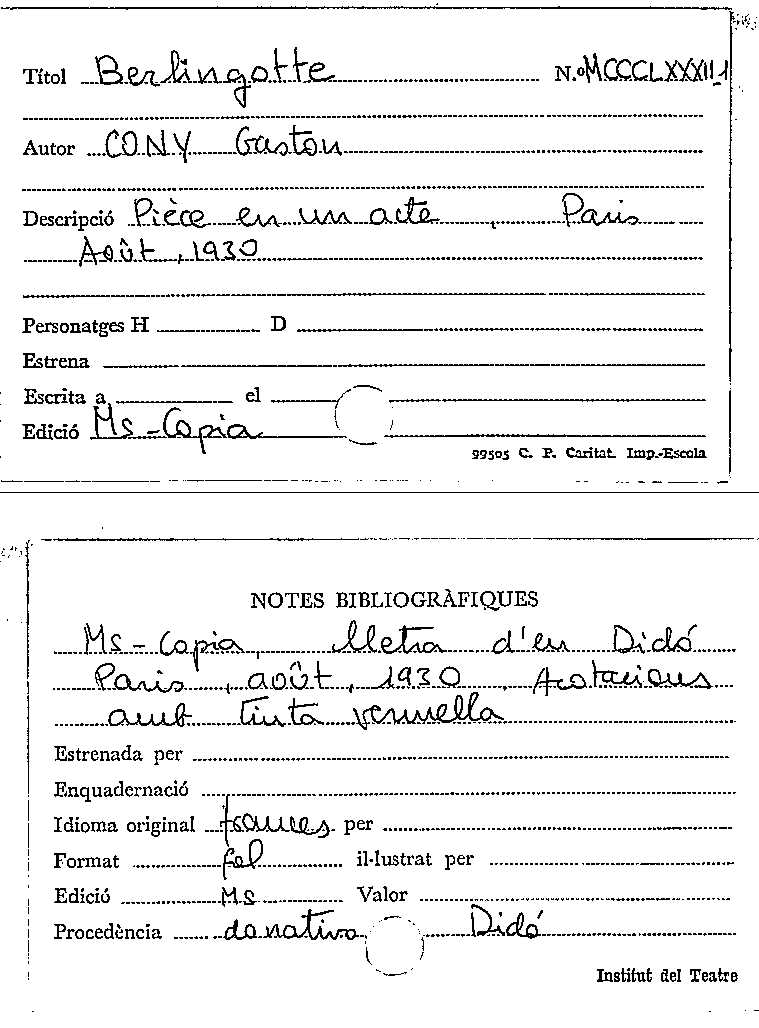 Títol Berlingotte N.º MCCCLXXXII-1
Autor CONY Gaston
Descripció Pièce en un acte , Paris
Août , 1930
Personatges H D
Estrena
Escrita a el
Edició Ms-Copia
99505 C. P. Caritat. Imp.-Escola
NOTES BIBLIOGRÀFIQUES
Ms-Copia, lletra d'en Didó
Paris , août , 1930 , Acotacions
amb tinta vermella
Estrenada per
Enquadernació
Idioma original frances per
Format fol il·lustrat per
Edició Ms Valor
Procedència donativo Didó
Institut del Teatre